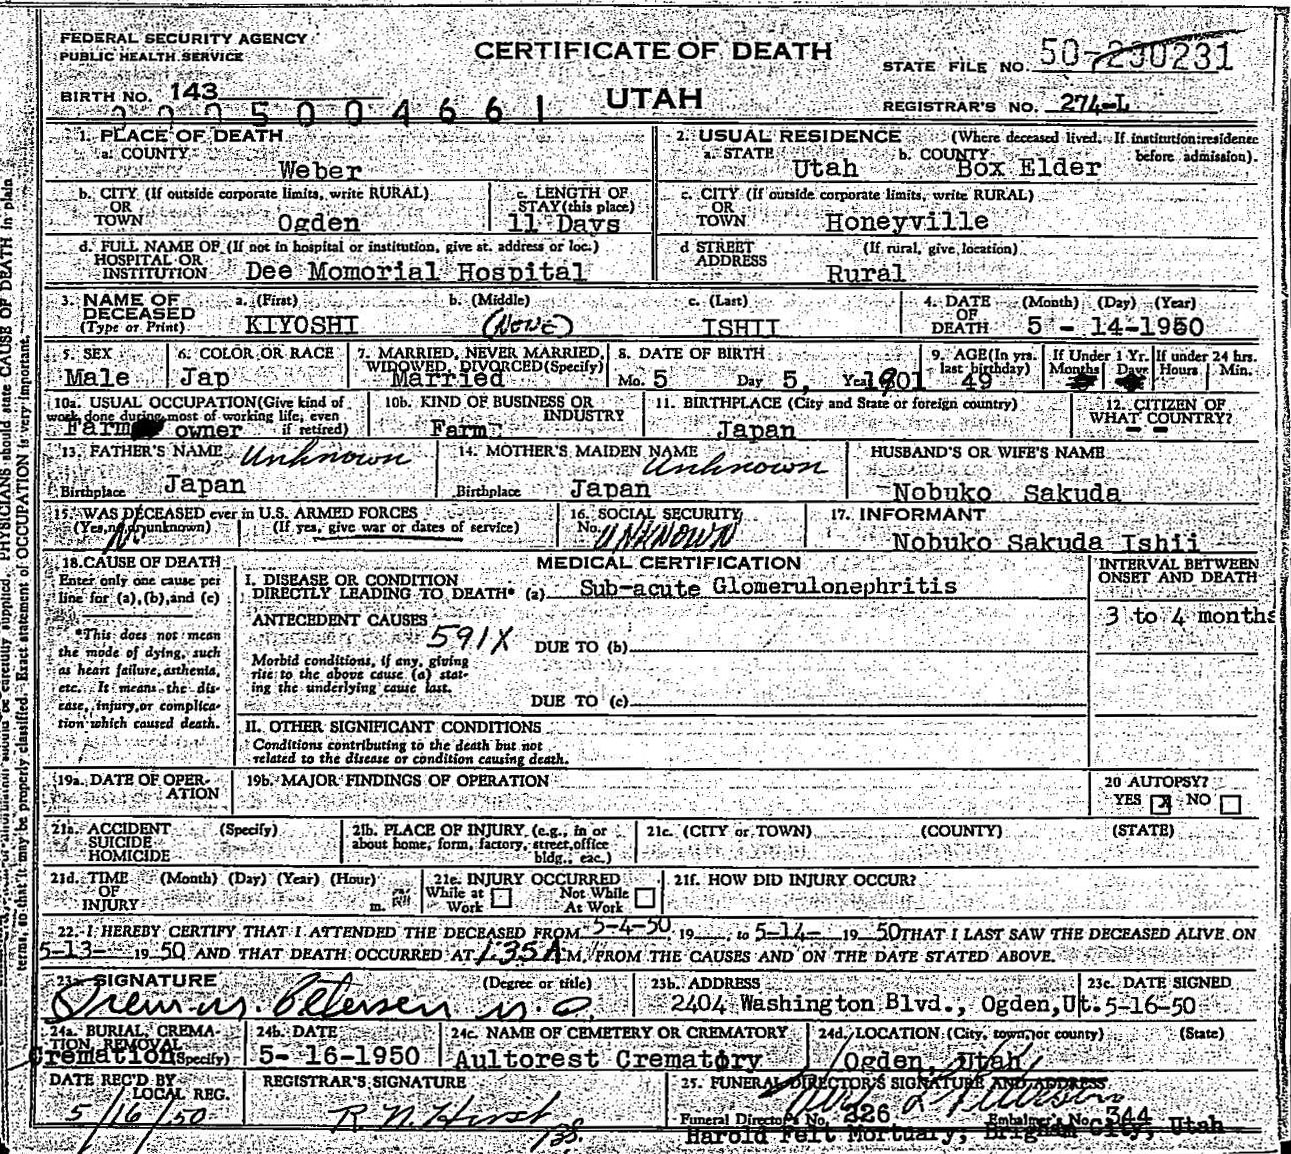 FEDERAL SECURITY AGENCY
PUBLIC HEALTH SERVICE
CERTIFICATE OF DEATH
STATE FILE NO. 50-230231
BIRTH NO. 143
UTAH
REGISTRAR'S NO. 274-L
0005004661
1. PLACE OF DEATH
a. COUNTY
Weber
2. USUAL RESIDENCE (Where deceased lived. If institution:residence before admission).
a. STATE Utah b. COUNTY Box Elder
b. CITY (If outside corporate limits, write RURAL)
OR
TOWN Ogden
c. LENGTH OF
STAY (this place)
11 Days
c. CITY (If outside corporate limits, write RURAL)
OR
TOWN Honeyville
d. FULL NAME OF (If not in hospital or institution, give st. address or loc.)
HOSPITAL OR
INSTITUTION Dee Momorial Hospital
d STREET (If rural, give location)
ADDRESS
Rural
3. NAME OF
DECEASED
(Type or Print)
a. (First) b. (Middle) c. (Last)
KIYOSHI (None) ISHII
4. DATE (Month) (Day) (Year)
OF
DEATH 5 - 14-1950
5. SEX
Male
6. COLOR OR RACE
Jap
7. MARRIED, NEVER MARRIED,
WIDOWED, DIVORCED (Specify)
Married
8. DATE OF BIRTH
Mo. 5 Day 5, Year 1901
9. AGE (In yrs.
last birthday)
49
If Under 1 Yr.
Months Days
If under 24 hrs.
Hours Min.
10a. USUAL OCCUPATION (Give kind of
work done during most of working life, even
if retired)
Farm owner
10b. KIND OF BUSINESS OR
INDUSTRY
Farm
11. BIRTHPLACE (City and State or foreign country)
Japan
12. CITIZEN OF
WHAT COUNTRY?
13. FATHER'S NAME Unknown
Birthplace Japan
14. MOTHER'S MAIDEN NAME
Unknown
Birthplace Japan
HUSBAND'S OR WIFE'S NAME
Nobuko Sakuda
15. WAS DECEASED ever in U.S. ARMED FORCES
(Yes, no, or unknown) (If yes, give war or dates of service)
16. SOCIAL SECURITY
No. UNKNOWN
17. INFORMANT
Nobuko Sakuda Ishii
18. CAUSE OF DEATH
Enter only one cause per
line for (a), (b), and (c)
*This does not mean
the mode of dying, such
as heart failure, asthenia,
etc. It means the dis-
ease, injury, or complica-
tion which caused death.
MEDICAL CERTIFICATION
I. DISEASE OR CONDITION
DIRECTLY LEADING TO DEATH* (a) Sub-acute Glomerulonephritis
ANTECEDENT CAUSES
591X
DUE TO (b)
Morbid conditions, if any, giving
rise to the above cause (a) stat-
ing the underlying cause last.
DUE TO (c)
II. OTHER SIGNIFICANT CONDITIONS
Conditions contributing to the death but not
related to the disease or condition causing death.
INTERVAL BETWEEN
ONSET AND DEATH
3 to 4 months
19a. DATE OF OPER-
ATION
19b. MAJOR FINDINGS OF OPERATION
20 AUTOPSY?
YES X NO
21a. ACCIDENT (Specify)
SUICIDE
HOMICIDE
21b. PLACE OF INJURY (e.g., in or
about home, form, factory, street, office
bldg., eac.)
21c. (CITY or TOWN) (COUNTY) (STATE)
21d. TIME (Month) (Day) (Year) (Hour)
OF
INJURY m.
21e. INJURY OCCURRED
While at Work
Not While At Work
21f. HOW DID INJURY OCCUR?
22. I HEREBY CERTIFY THAT I ATTENDED THE DECEASED FROM 5-4-50, 19 , to 5-14- 19 50 THAT I LAST SAW THE DECEASED ALIVE ON
5-13- 19 50 AND THAT DEATH OCCURRED AT 1:35A M, FROM THE CAUSES AND ON THE DATE STATED ABOVE.
23a. SIGNATURE (Degree or title)
Petersen M.D.
23b. ADDRESS
2404 Washington Blvd., Ogden, Ut.
23c. DATE SIGNED
5-16-50
24a. BURIAL, CREMA-
TION, REMOVAL
Cremation (Specify)
24b. DATE
5- 16-1950
24c. NAME OF CEMETERY OR CREMATORY
Aultorest Crematory
24d. LOCATION (City, town, or county) (State)
Ogden, Utah
DATE REC'D BY
LOCAL REG.
5/16/50
REGISTRAR'S SIGNATURE
R N Hirst
25. FUNERAL DIRECTOR'S SIGNATURE AND ADDRESS
Funeral Director's No. 326 Embalmer's No. 344
Harold Felt Mortuary, Brigham City, Utah
PHYSICIANS should state CAUSE OF DEATH in plain
terms, so that it may be properly classified. Exact statement of OCCUPATION is very important.